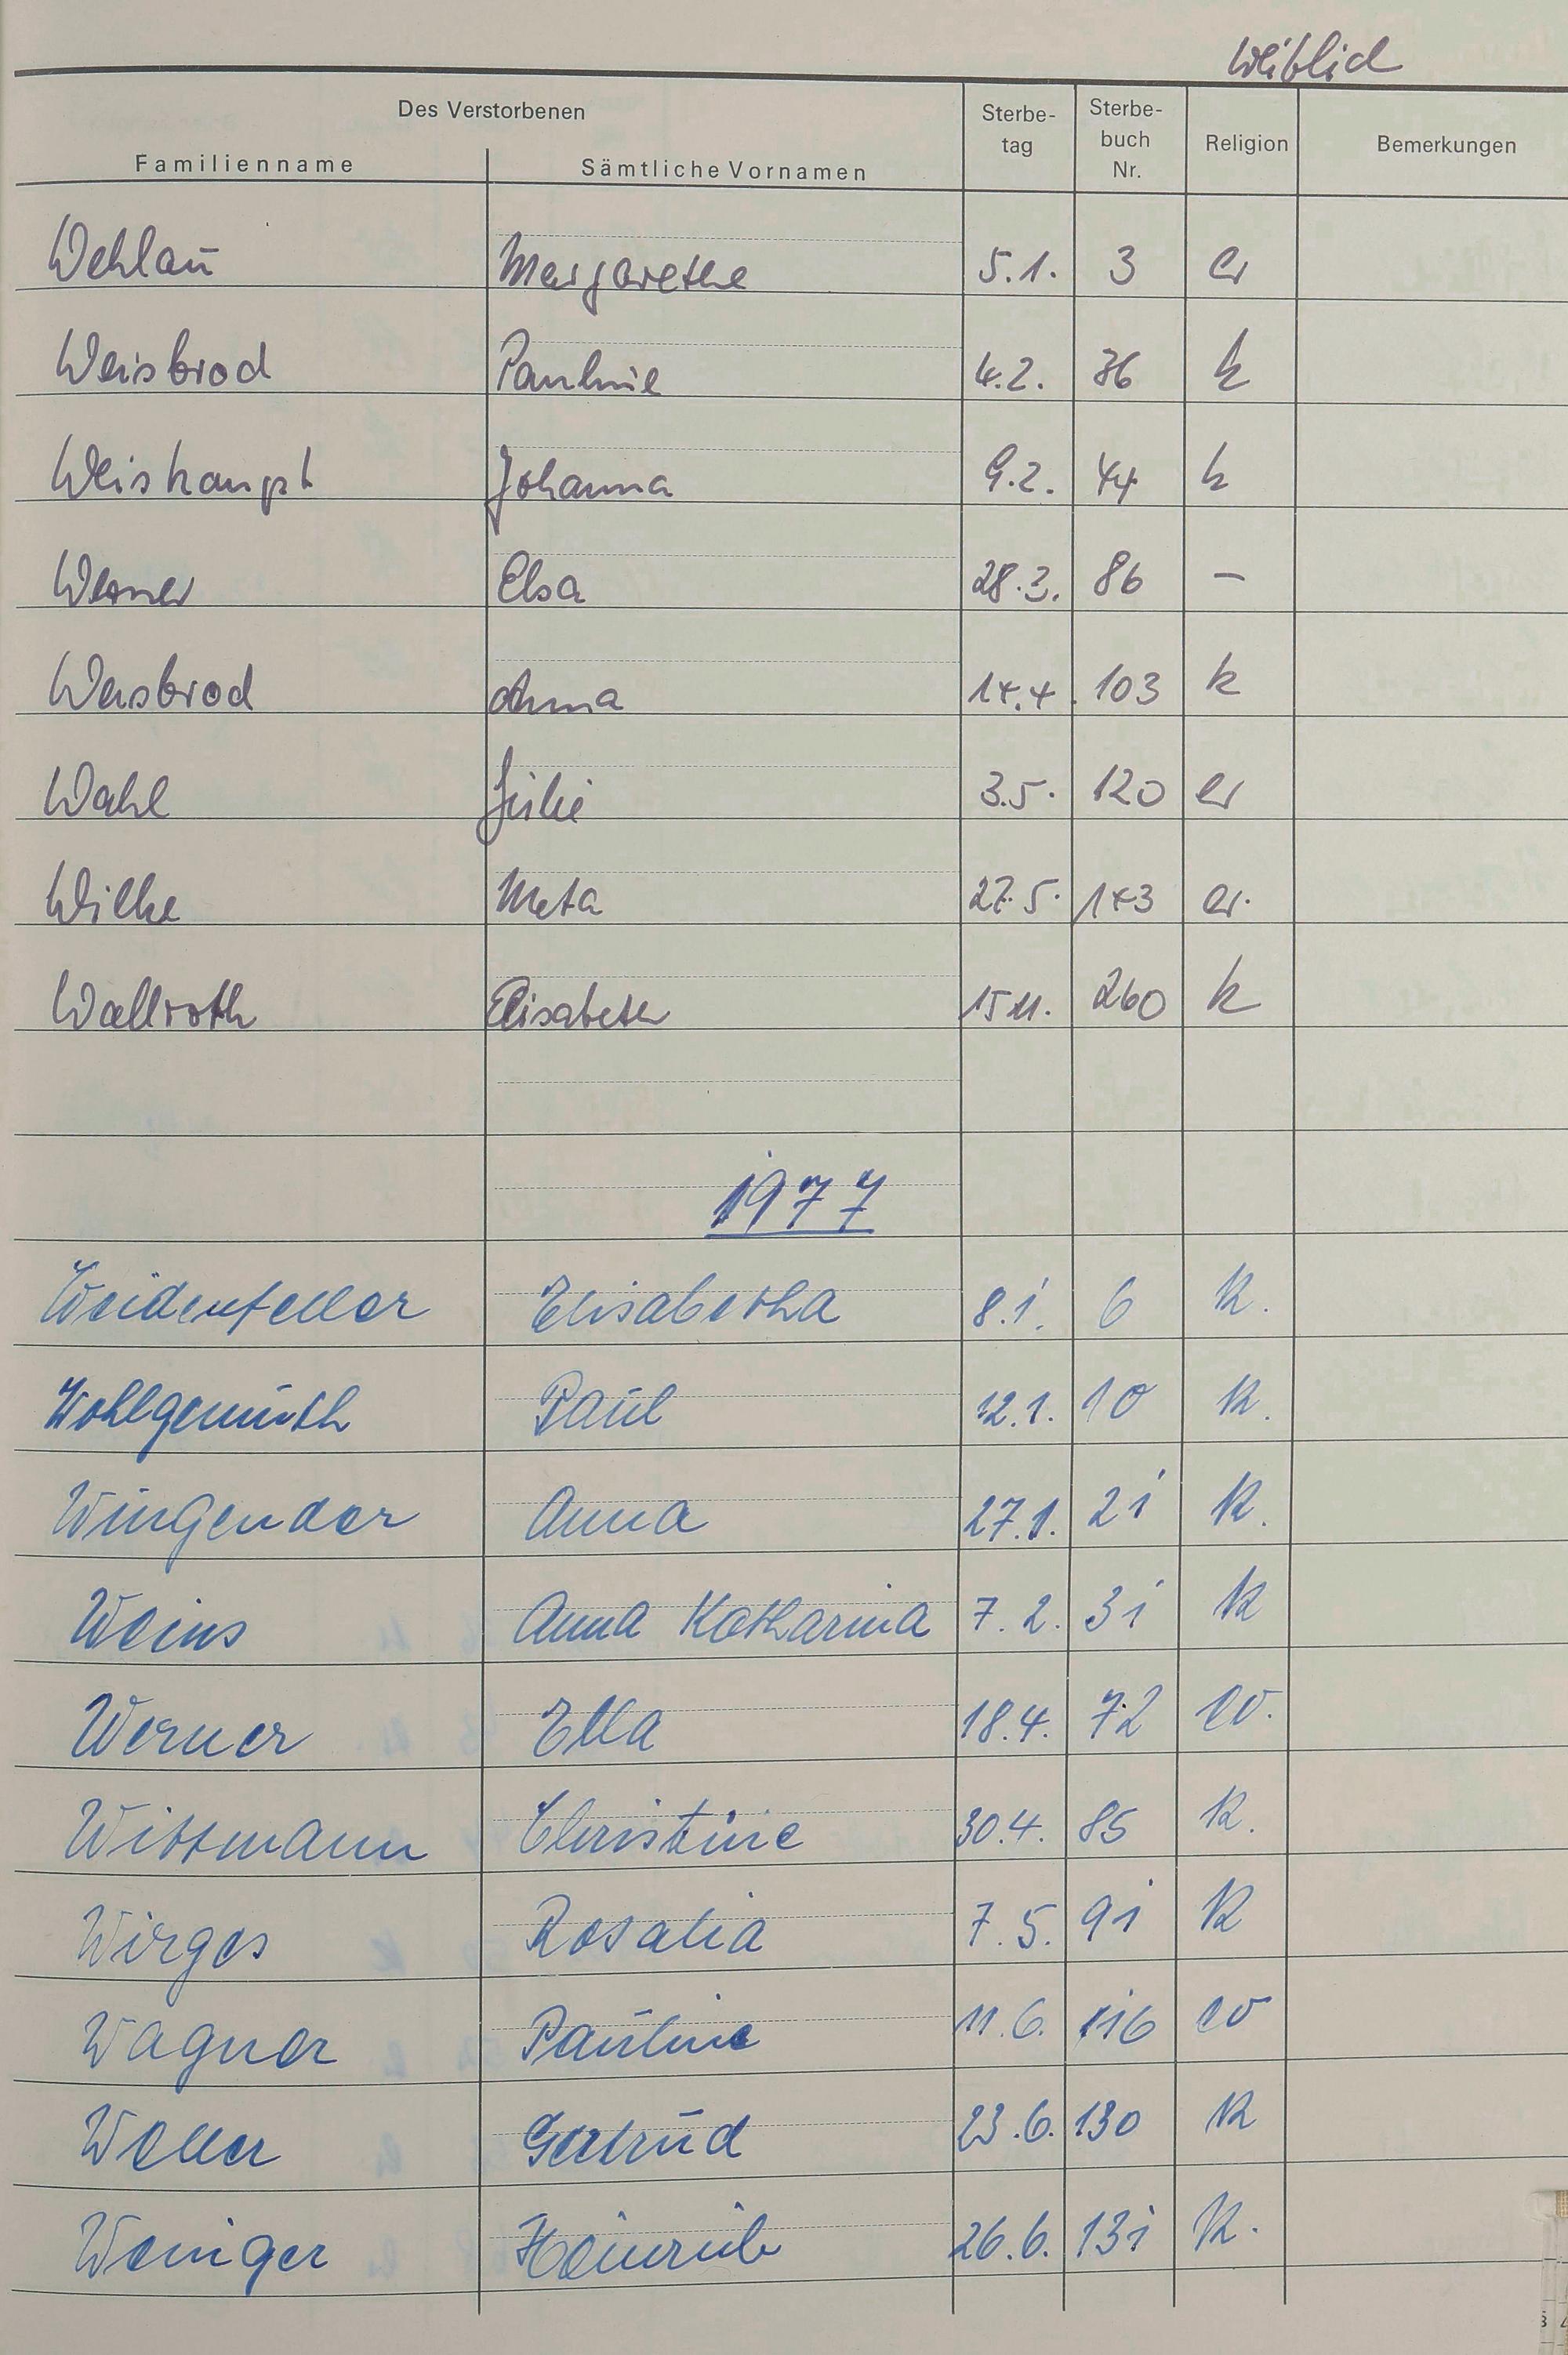 weiblich
Des Verstorbenen
Familienname Sämtliche Vornamen Sterbe-tag Sterbe-buch Nr. Religion Bemerkungen
Wehlau Margarethe 5.1. 3 ev
Weisbrod Pauline 4.2. 36 k
Weishaupt Johanna 9.2. 44 k
Werner Elsa 28.3. 86 –
Weisbrod Anna 14.4. 103 k
Wahl Julie 3.5. 120 ev
Wilke Meta 27.5. 143 ev.
Wallroth Elisabeth 15 11. 260 k
1977
Weidenfeller Elisabetha 8.1. 6 k.
Wohlgemuth Paul 12.1. 10 k.
Wingender Anna 27.1. 21 k.
Weins Anna Katharina 7.2. 31 k
Werner Ella 18.4. 72 ev.
Wittmann Christine 30.4. 85 k.
Wirges Rosalia 7.5. 91 k
Wagner Pauline 11.6. 116 ev
Weller Gertrud 23.6. 130 k
Weniger Heinrich 26.6. 131 k.